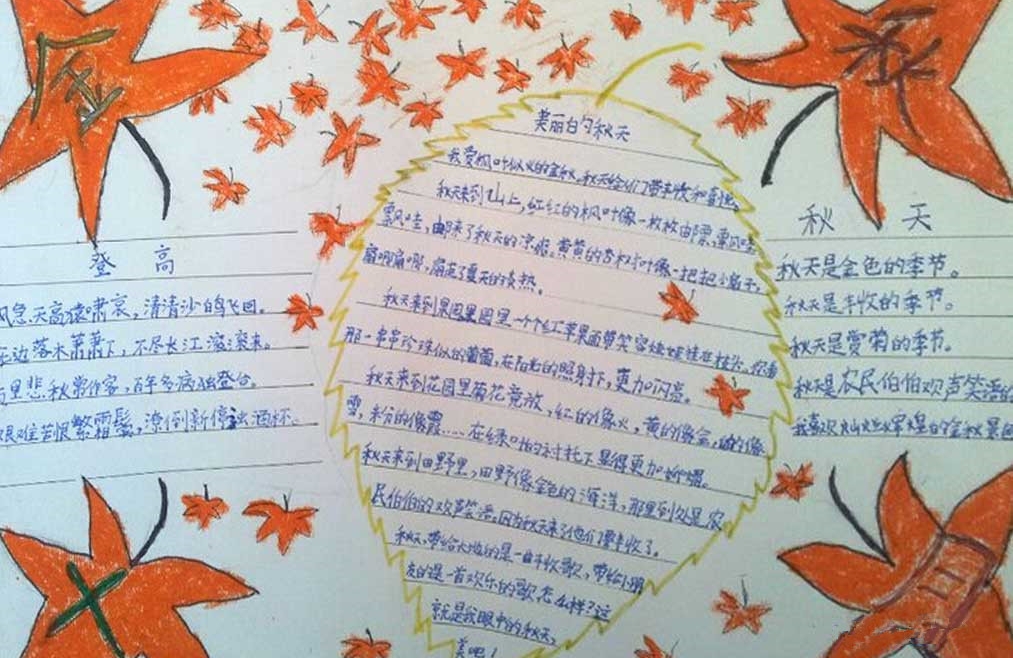 金
秋
登 高
风急天高猿啸哀,清清沙的鸟飞回。
无边落木萧萧下,不尽长江滚滚来。
里悲秋常作客,百年多病独登台。
艰难苦恨繁霜鬓,潦倒新停浊酒杯。
美丽的秋天
我爱枫叶似火的金秋,秋天给们带来
秋天来到山上,红红的枫叶像一枚枚邮票,飘呀
飘呀哇,邮来了秋天的凉爽。黄黄的杏树叶像一把把小扇子,
扇啊扇啊,扇走了夏天的炎热。
秋天来到果园里园里一个个红苹果面带笑容挂在枝头,
那一串串珍珠似的葡萄,在阳光的照射下,更加闪亮。
秋天来到花园里菊花竞放,红的像火,黄的像金,的像
雪,粉的像霞……在绿叶的衬托下显得更加
秋天来到田野里,田野像金色的海洋,那里到处是农
民伯伯的欢声笑语,因为秋天来了他们要丰收了。
秋天,带给大地的是一曲丰收歌,带给小朋
友的是一首欢乐的歌,怎么样?这
就是我眼中的秋天,
美吧!
秋 天
秋天是金色的季节。
秋天是丰收的季节。
秋天是赏菊的季节。
秋天是农民伯伯欢声笑语的
我喜欢
十
月